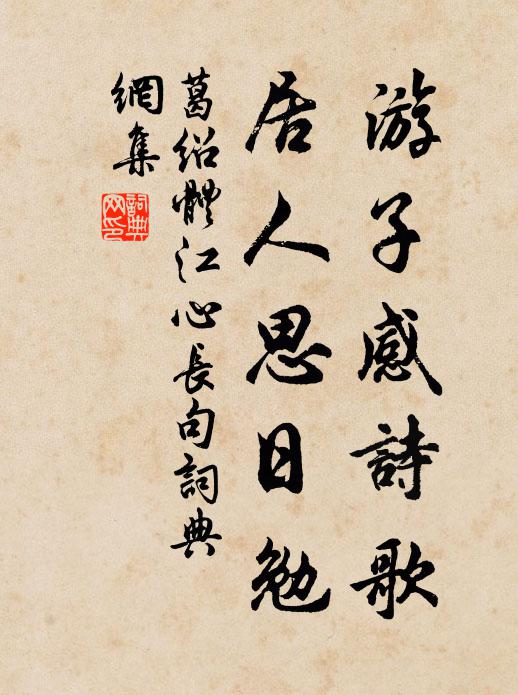 游子感詩歌
居人思日勉
葛绍體江心長句詞典
網集
詞典網印